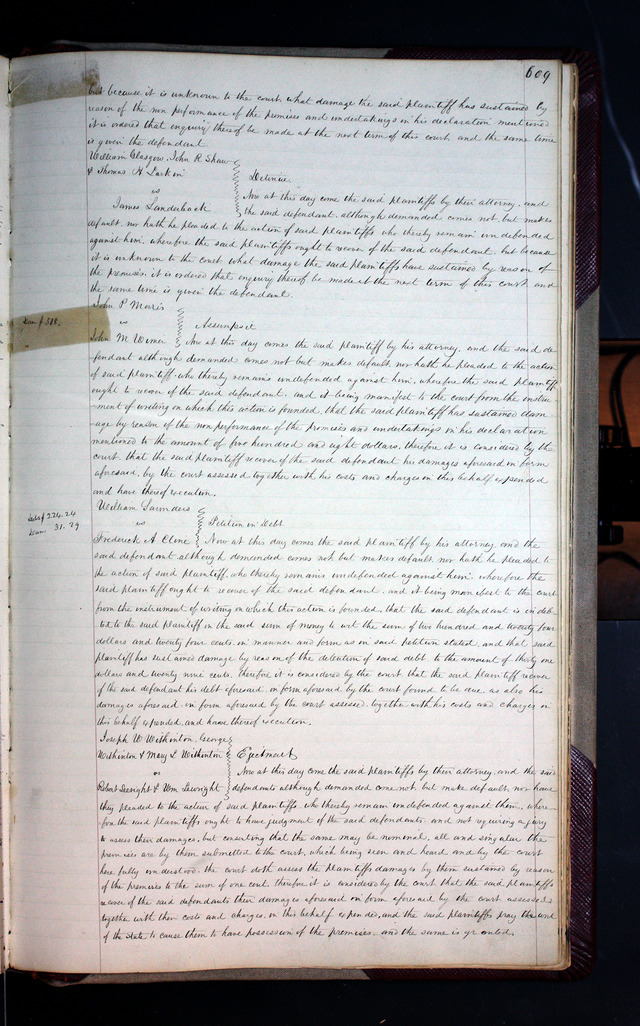 609
but because it is unknown to the court what damage the said plaintiff has sustained by
reason of the non performance of the premises and undertakings in his declaration mentioned
it is ordered that enquiry thereof be made at the next term of this court, and the same time
is given the defendant
William Glasgow, John R Shaw
& Thomas A Larkin
Detinue
vs
Now at this day come the said plaintiffs by their attorney, and
James Landeback
the said defendant, although demanded comes not, but makes
default, nor hath he pleaded to the action of said plaintiffs who thereby remain undefended
against him, wherefore the said plaintiffs ought to recover of the said defendant, but because
it is unknown to the court what damage the said plaintiffs have sustained by reason of
the premises, it is ordered that enquiry thereof be made at the next term of this court and
the same time is given the defendant.
John P Morris
Dam $ 508.
vs
Assumpsit
John M. Wimer
Now at this day comes the said plaintiff by his attorney, and the said de
fendant although demanded comes not but makes default, nor hath he pleaded to the action
of said plaintiff, who thereby remains undefended against him, wherefore the said plaintiff
ought to recover of the said defendant, and it being manifest to the court from the instru
ment of writing on which this action is founded, that the said plaintiff has sustained dam
age by reason of the non performance of the promises and undertakings in his declaration
mentioned to the amount of five hundred and eight dollars, therefore it is considered by the
court, that the said plaintiff recover of the said defendant his damages aforesaid in form
aforesaid, by the court assessed together with his costs and charges in this behalf expended
and have thereof execution.
William Saunders
Debt $ 224.24
Dam 31.29
vs
Petition in Debt
Frederick A Cline
Now at this day comes the said plaintiff by his attorney, and the
said defendant although demanded comes not but makes default nor hath he pleaded to
the action of said plaintiff, who thereby remains undefended against him, wherefore the
said plaintiff ought to recover of the said defendant, and it being manifest to the court
from the instrument of writing on which this action is founded, that the said defendant is in deb
ted to the said plaintiff in the said sum of money to wit the sum of two hundred and twenty four
dollars and twenty four cents, in manner and form as in said petition stated, and that said
plaintiff has sustained damage by reason of the detention of said debt, to the amount of thirty one
dollars and twenty nine cents, therefore it is considered by the court that the said plaintiff recover
of the said defendant his debt aforesaid, in form aforesaid by the court found to be due, as also his
damages aforesaid, in form aforesaid by the court assessed, together with his costs and charges in
this behalf expended, and have thereof execution.
Joseph W Withinton, George
Withinton & Mary L Withinton
Ejectment
vs
Now at this day come the said plaintiffs by their attorney, and the said
Robert Seewright & Wm Sewright
defendants although demanded come not, but make default, nor have
they pleaded to the action of said plaintiffs, who thereby remain undefended against them, where
fore the said plaintiffs ought to have judgment of the said defendants, and not requiring a jury
to assess their damages, but consenting that the same may be nominal, all and singular the
premises are by them submitted to the court, which being seen and heard and by the court
here fully understood, the court doth assess the plaintiffs damages by them sustained by reason
of the premises to the sum of one cent, therefore it is considered by the court that the said plaintiffs
recover of the said defendants their damages aforesaid in form aforesaid by the court assessed
together with their costs and charges, in this behalf expended, and the said plaintiffs pray the writ
of the state to cause them to have possession of the premises, and the same is granted.